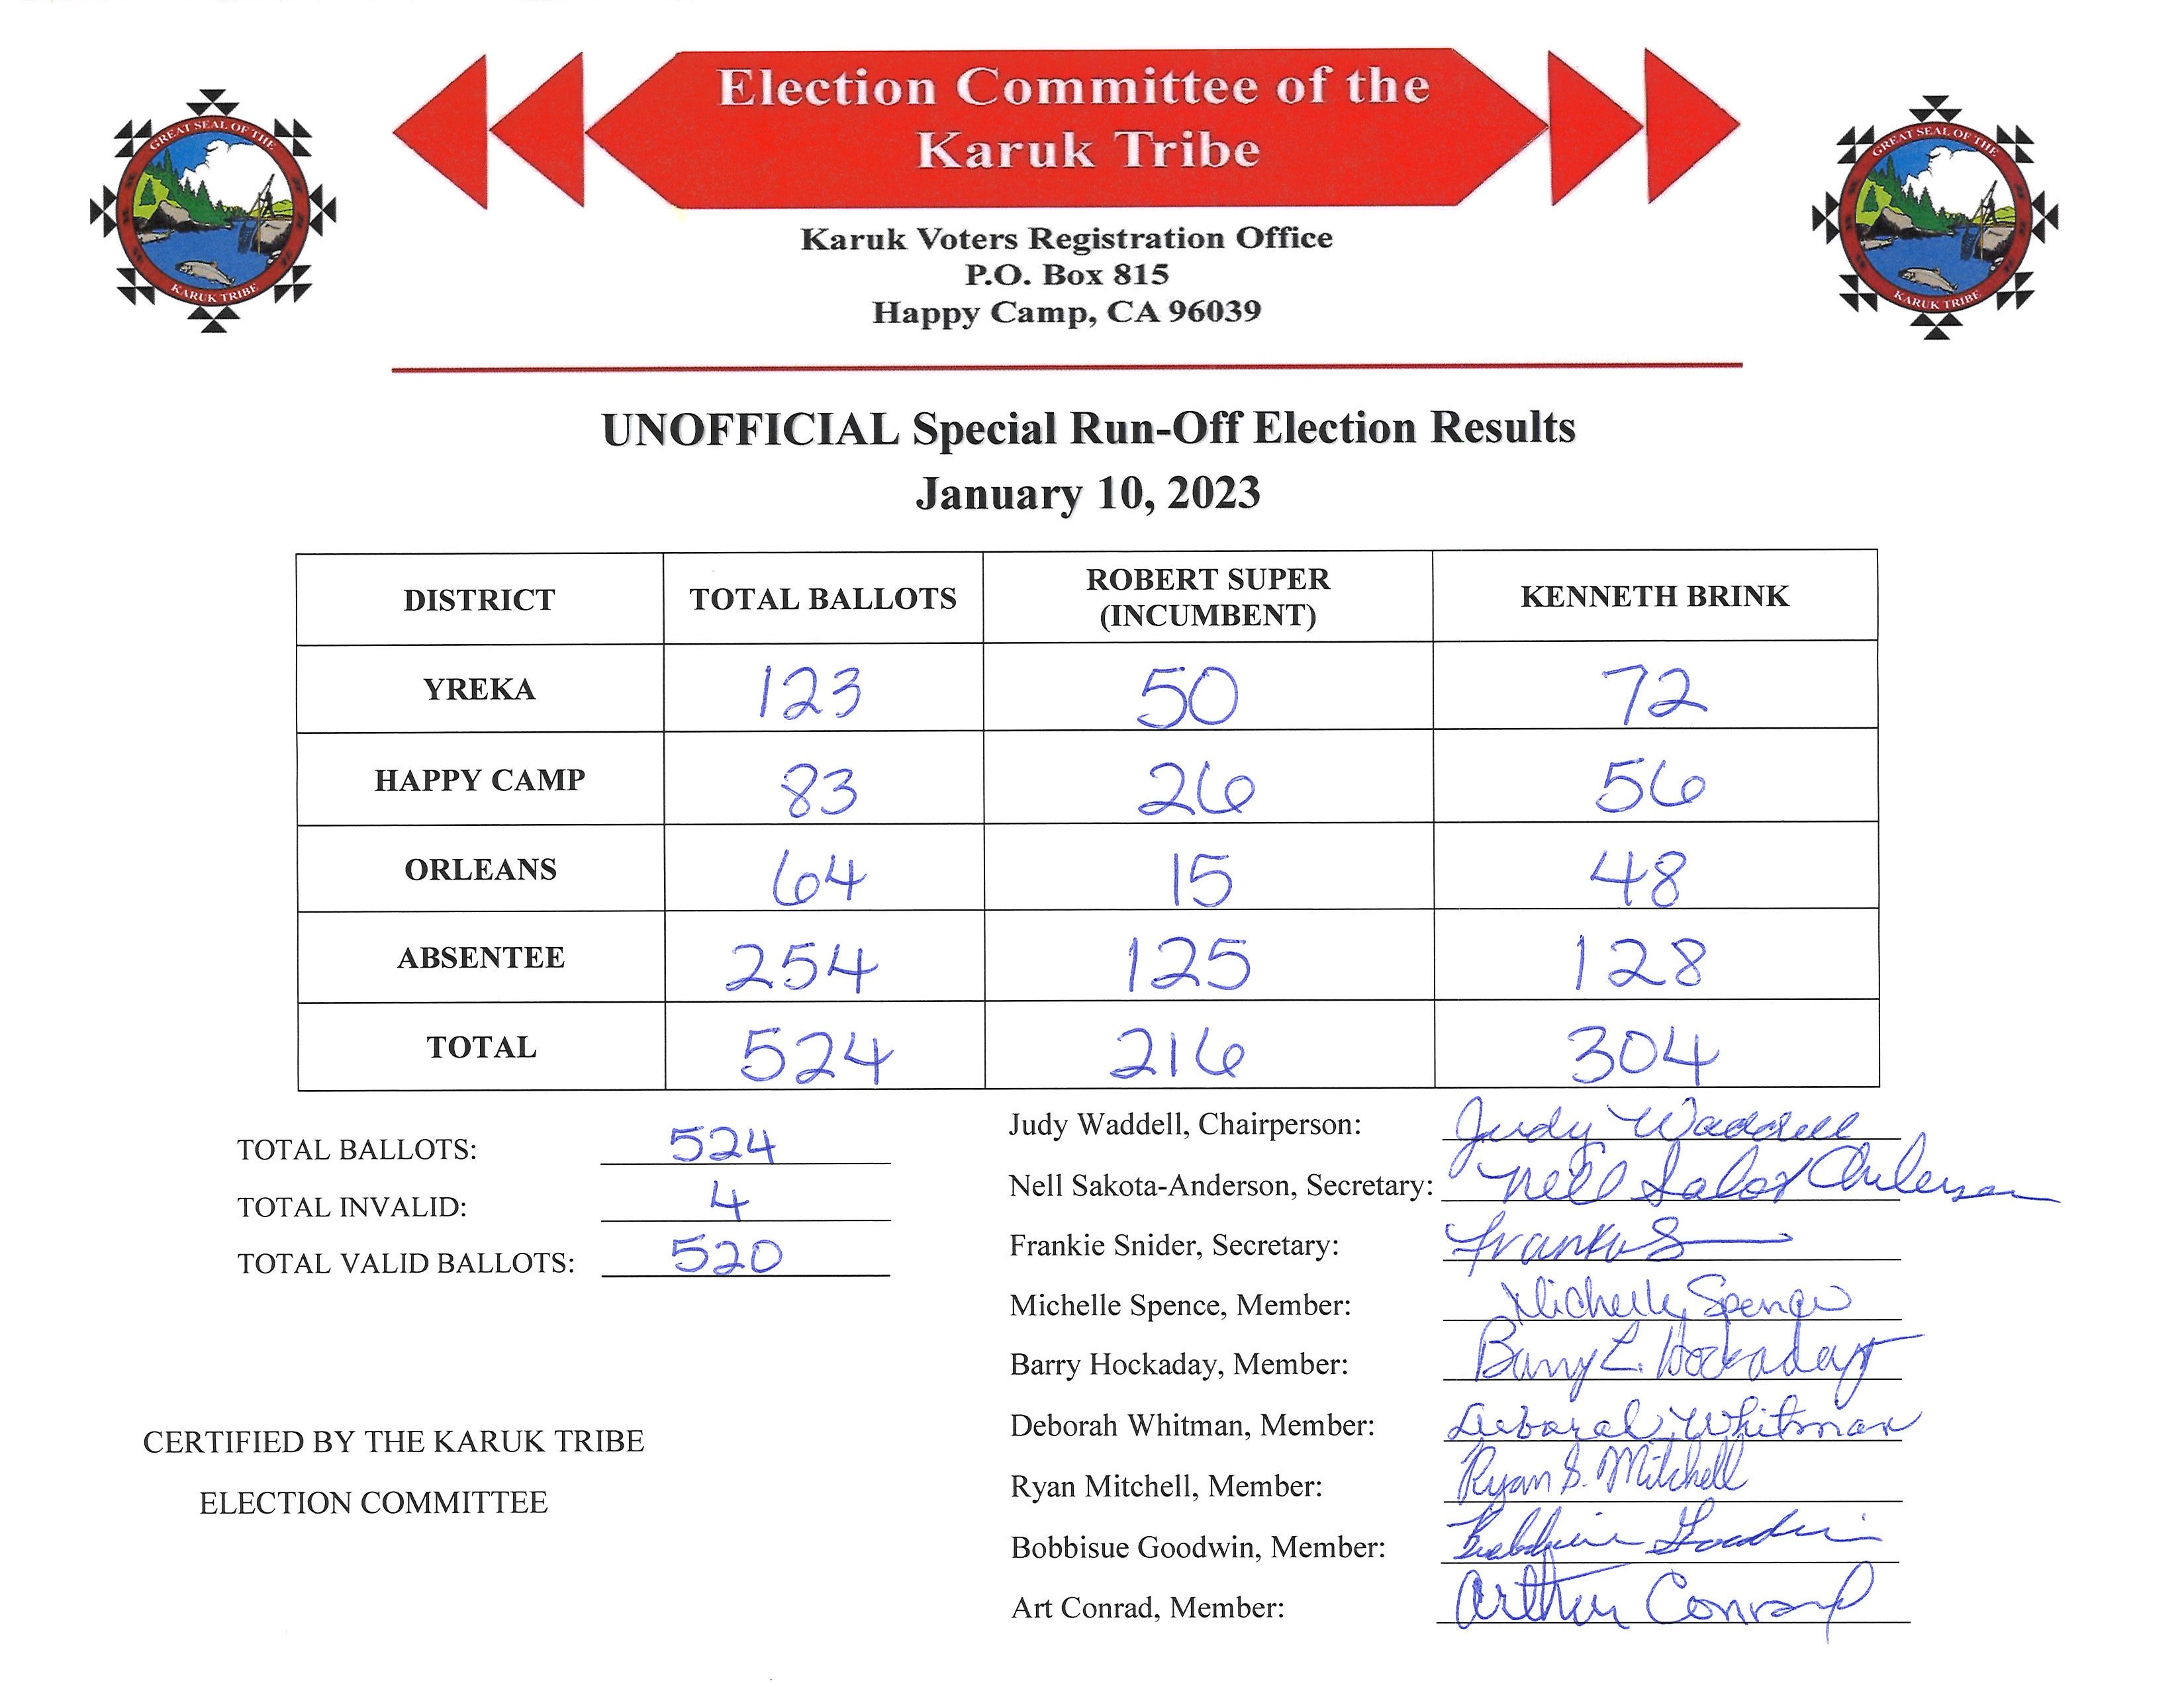 Election Committee of the
Karuk Tribe
GREAT SEAL OF THE
KARUK TRIBE
GREAT SEAL OF THE
KARUK TRIBE
Karuk Voters Registration Office
P.O. Box 815
Happy Camp, CA 96039
UNOFFICIAL Special Run-Off Election Results
January 10, 2023
DISTRICT TOTAL BALLOTS ROBERT SUPER (INCUMBENT) KENNETH BRINK
YREKA 123 50 72
HAPPY CAMP 83 26 56
ORLEANS 64 15 48
ABSENTEE 254 125 128
TOTAL 524 216 304
TOTAL BALLOTS: 524
TOTAL INVALID: 4
TOTAL VALID BALLOTS: 520
CERTIFIED BY THE KARUK TRIBE
ELECTION COMMITTEE
Judy Waddell, Chairperson: Judy Waddell
Nell Sakota-Anderson, Secretary: Nell
Frankie Snider, Secretary:
Michelle Spence, Member: Michelle Spence
Barry Hockaday, Member: Barry L. Hockaday
Deborah Whitman, Member: Deborah Whitman
Ryan Mitchell, Member: Ryan S. Mitchell
Bobbisue Goodwin, Member:
Art Conrad, Member: Arthur Conrad